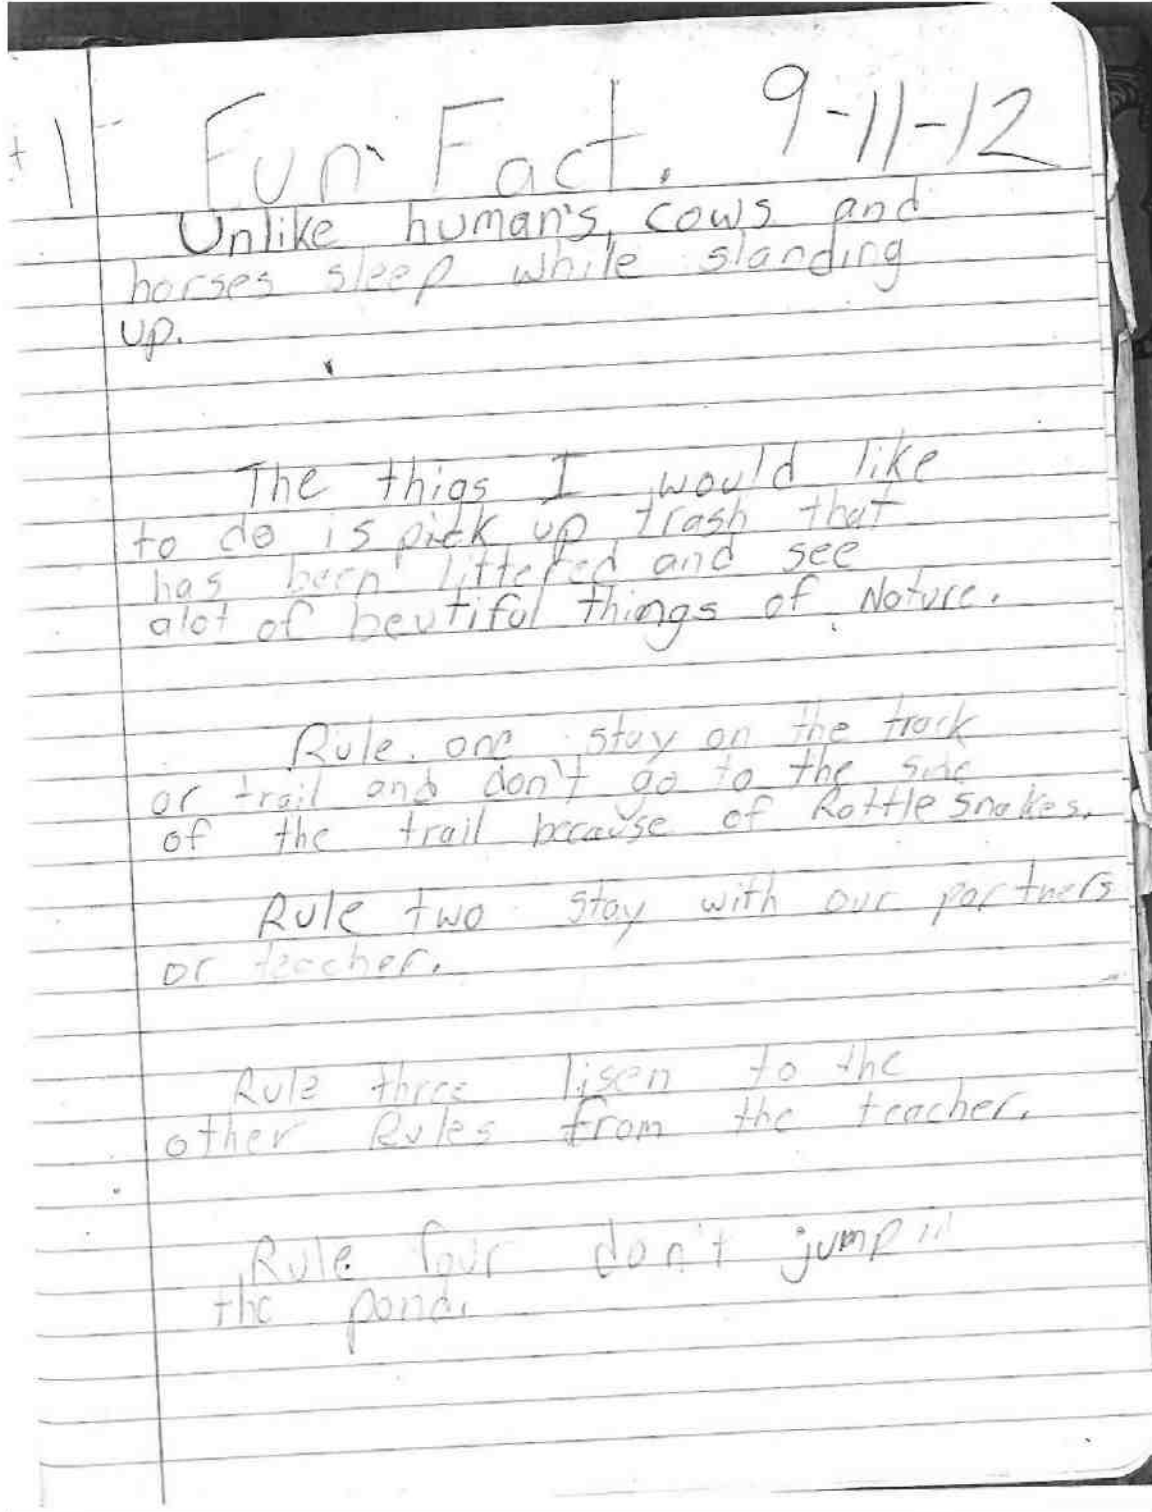 9-11-12
Fun Fact.
Unlike human's, cows and
horses sleep while standing
up.
The thigs I would like
to do is pick up trash that
has been littered and see
alot of beutiful things of Nature.
Rule one stay on the track
or trail and don't go to the side
of the trail because of Rattle snakes.
Rule two stay with our partners
or teacher.
Rule three lisen to the
other Rules from the teacher.
Rule four don't jump in
the pond.